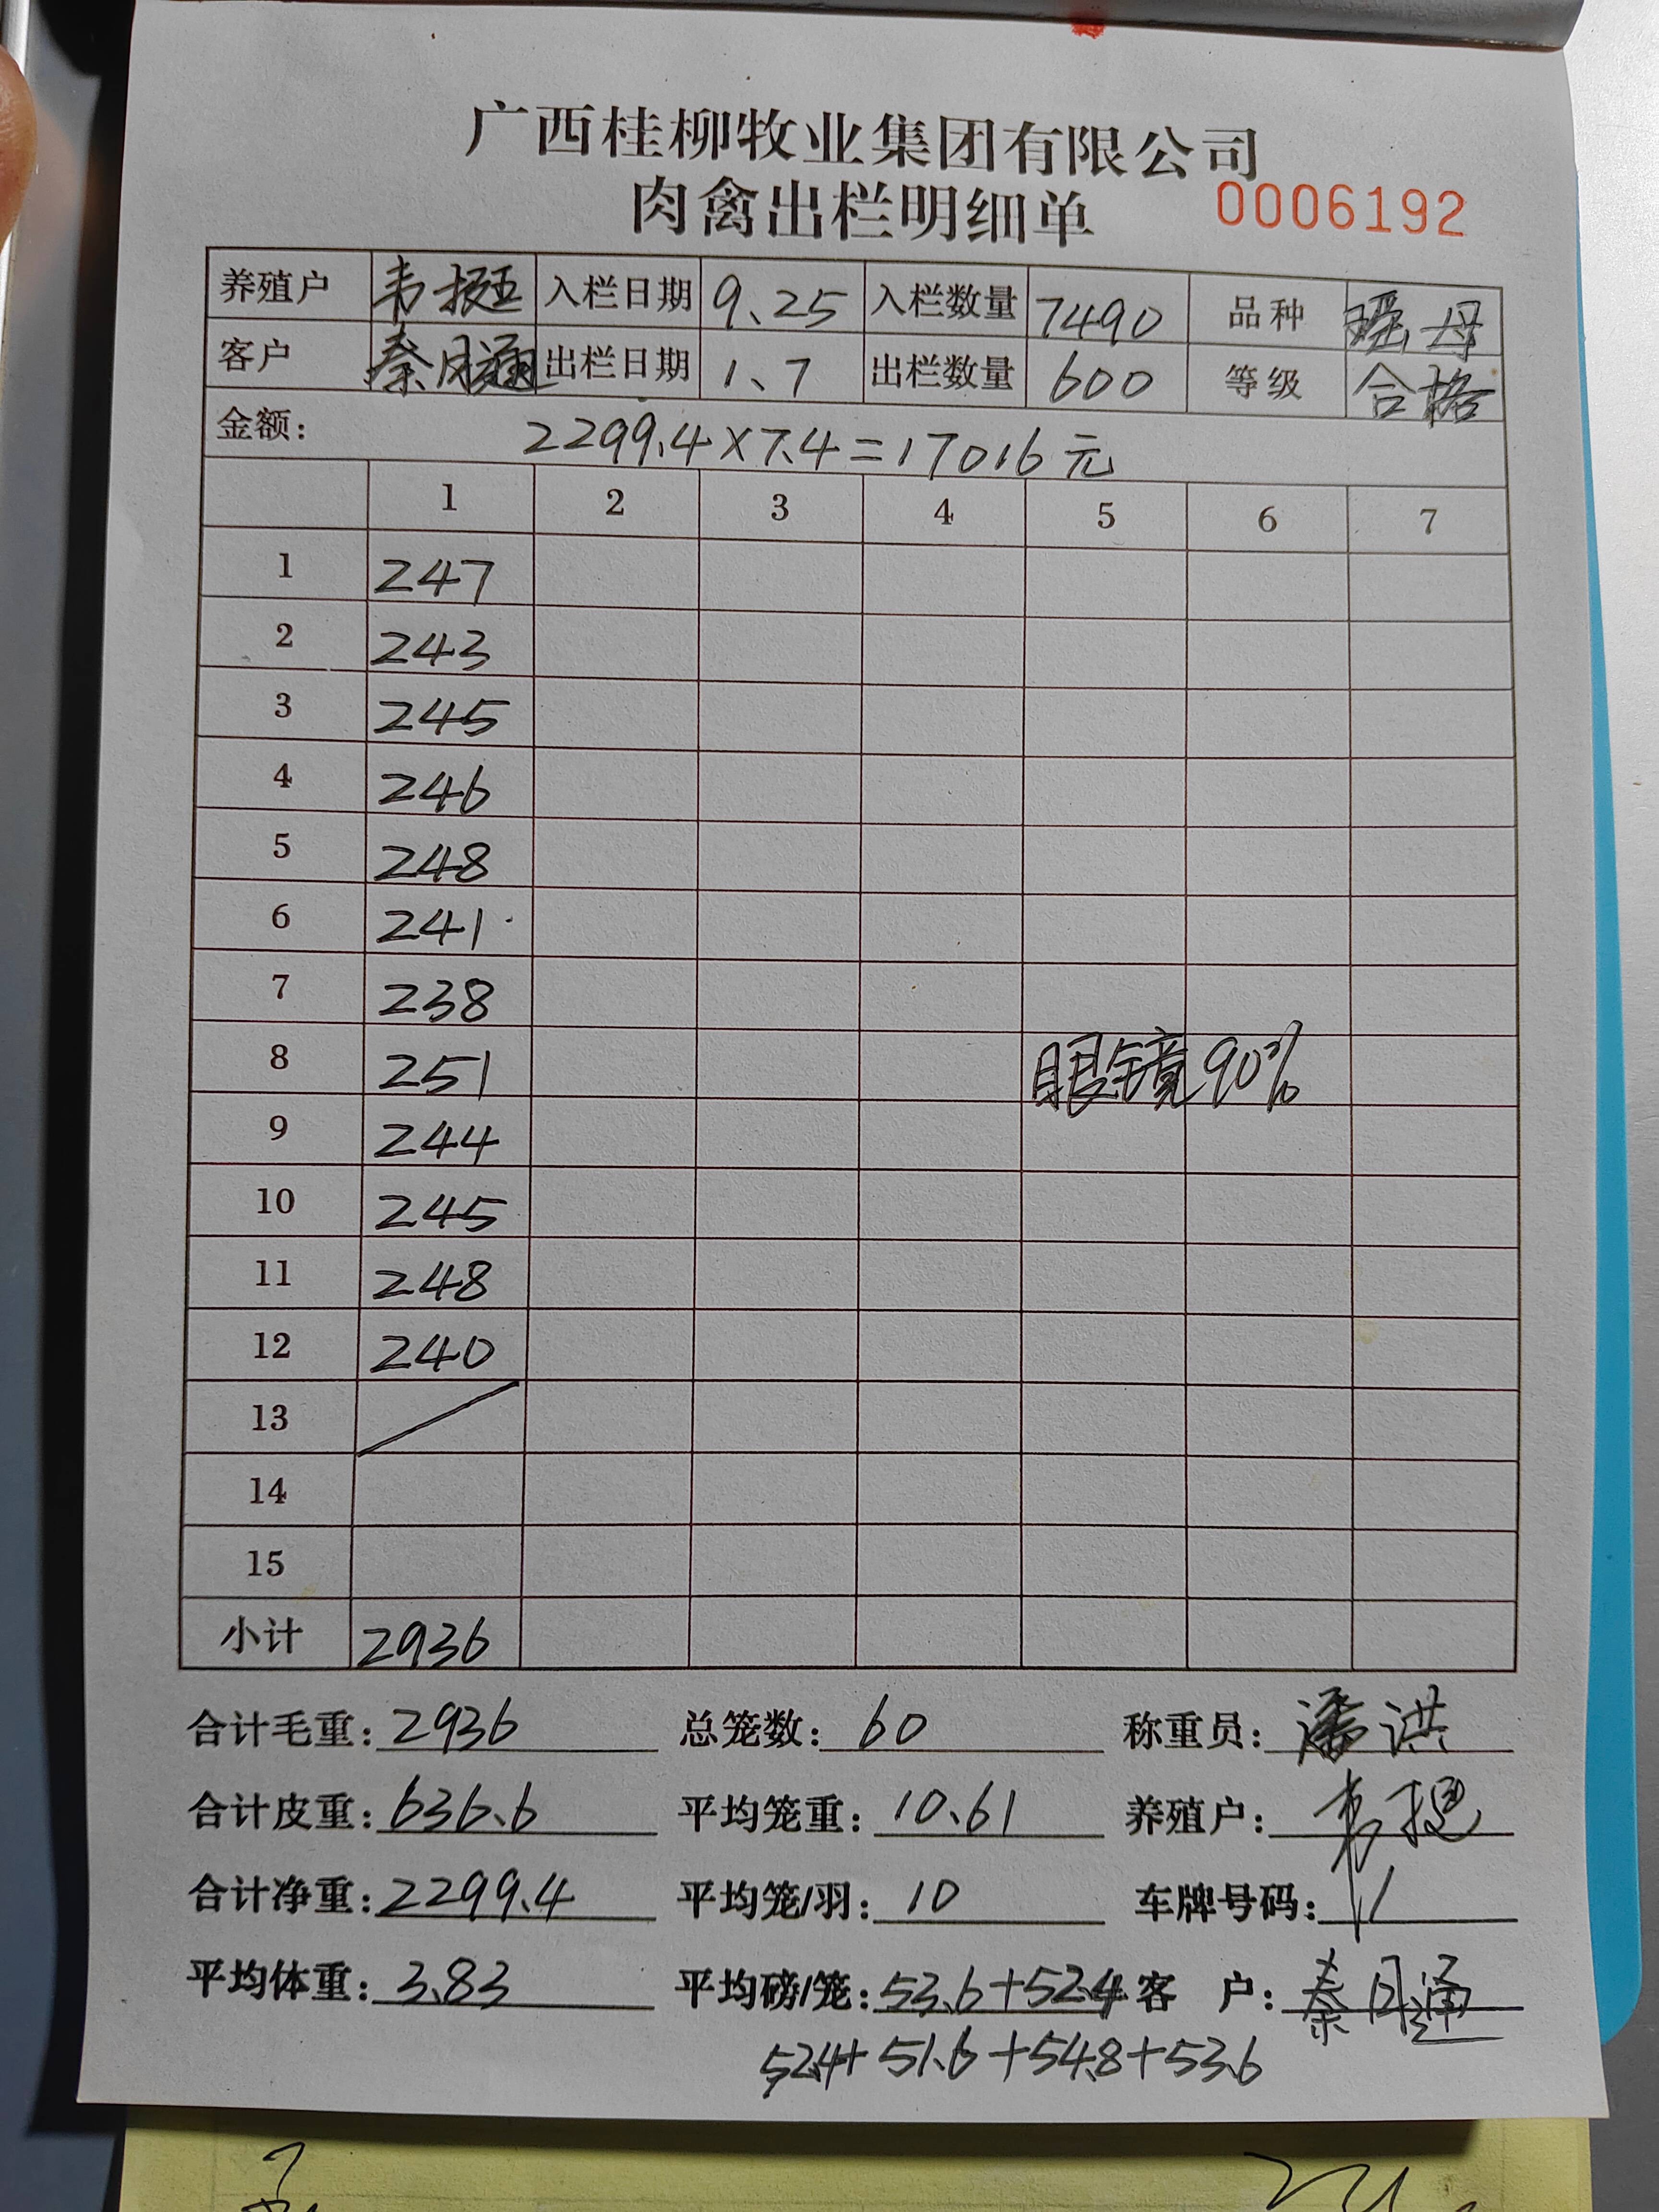 广西桂柳牧业集团有限公司
肉禽出栏明细单 0006192
养殖户 韦挺 入栏日期 9、25 入栏数量 7490 品种 瑶母
客户 秦月通 出栏日期 1、7 出栏数量 600 等级 合格
金额: 2299.4×7.4=17016元
1 2 3 4 5 6 7
1 247
2 243
3 245
4 246
5 248
6 241
7 238
8 251 眼镜90%
9 244
10 245
11 248
12 240
13
14
15
小计 2936
合计毛重: 2936 总笼数: 60 称重员: 潘洪
合计皮重: 636.6 平均笼重: 10.61 养殖户: 韦挺
合计净重: 2299.4 平均笼/羽: 10 车牌号码:
平均体重: 3.83 平均磅/笼: 53.6+52.4 客 户: 秦月通
52.4+51.6+54.8+53.6